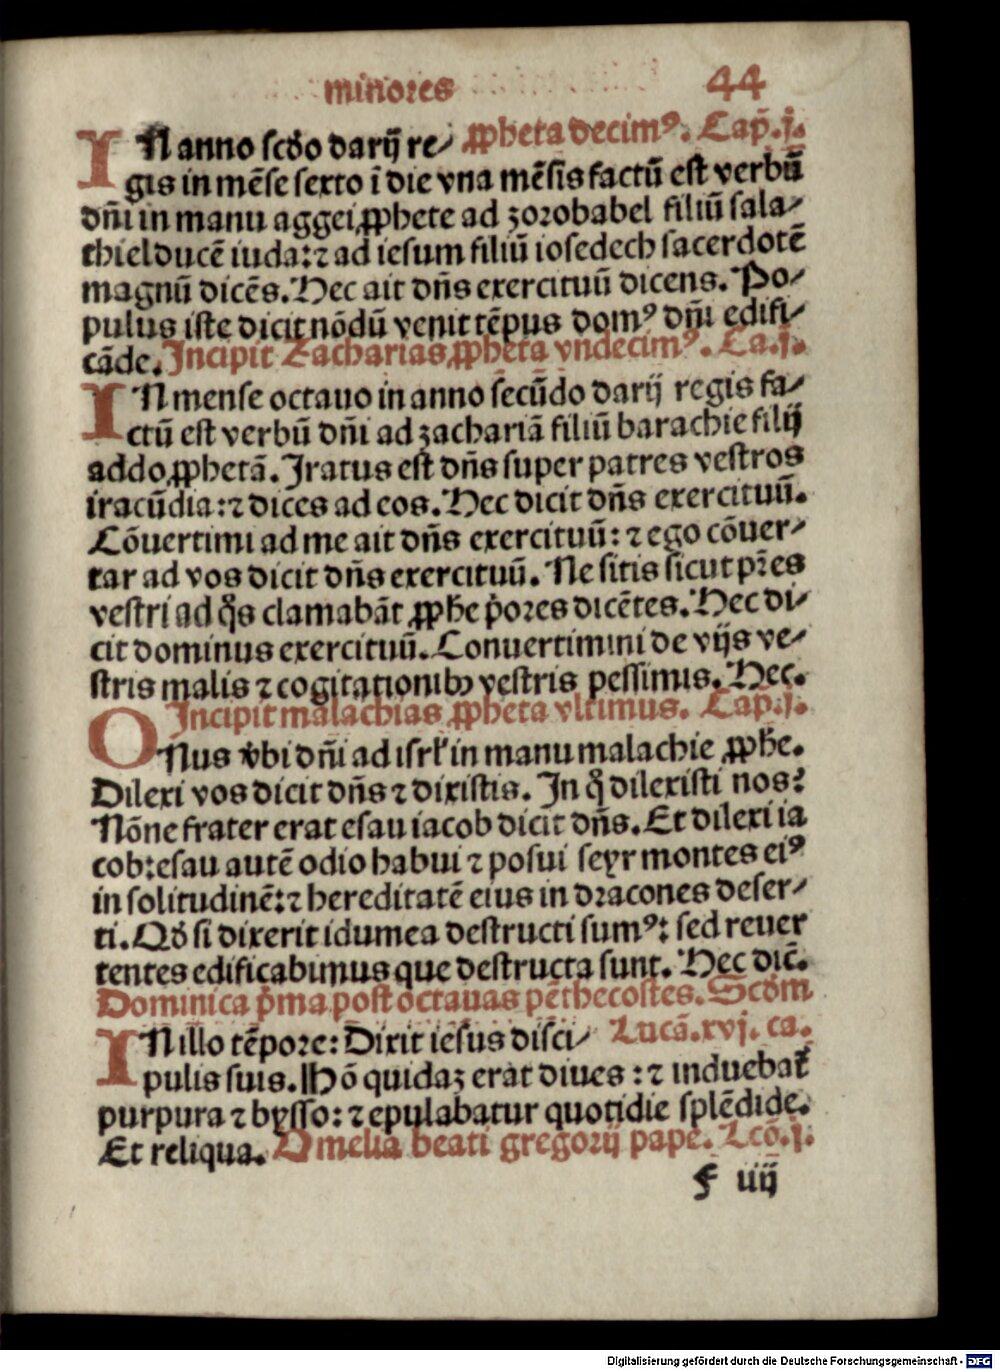 minores 44
IN anno scďo darij re⸗ ꝓpheta decimꝰ. Cap̄.j.
gis in mēse sexto ī die vna mēsis factū est verbū
dn̄i in manu aggei ꝓphete ad zorobabel filiū sala⸗
thiel ducē iuda: ⁊ ad iesum filiū iosedech sacerdotē
magnū dicēs. Hec ait dn̄s exercituū dicens. Po⸗
pulus iste dicit nōdū venit tēpus domꝰ dn̄i edifi⸗
cāde. Incipit Zacharias ꝓpheta vndecimꝰ. Ca.j.
IN mense octauo in anno secūdo darij regis fa⸗
ctū est verbū dn̄i ad zachariā filiū barachie filij
addo ꝓphetā. Iratus est dn̄s super patres vestros
iracūdia: ⁊ dices ad eos. Hec dicit dn̄s exercituū.
Cōuertimi ad me ait dn̄s exercituū: ⁊ ego cōuer⸗
tar ad vos dicit dn̄s exercituū. Ne sitis sicut pr̄es
vestri ad q̊s clamabāt ꝓphe p̓ores dicētes. Hec di⸗
cit dominus exercituū. Conuertimini de vijs ve⸗
stris malis ⁊ cogitationibꝫ vestris pessimis. Hec.
Incipit malachias ꝓpheta vltimus. Cap̄.j.
ONus v̓bi dn̄i ad isrl̓ in manu malachie ꝓph̄e.
Dilexi vos dicit dn̄s ⁊ dixistis. In q̊ dilexisti nos?
Nōne frater erat esau iacob dicit dn̄s. Et dilexi ia
cob: esau autē odio habui ⁊ posui seyr montes eiꝰ
in solitudinē: ⁊ hereditatē eius in dracones deser⸗
ti. Qď si dixerit idumea destructi sumꝰ: sed reuer
tentes edificabimus que destructa sunt. Hec dic̄.
Dominica p̓ma post octauas pēthecostes. Scďm
IN illo tēpore: Dixit iesus disci⸗ Lucā.xvj. ca.
pulis suis. Hō quidaꝫ erat diues: ⁊ induebat᷑
purpura ⁊ bysso: ⁊ epulabatur quotidie splēdide.
Et reliqua. Omelia beati gregorij pape. Lcō.j.
f iiij
Digitalisierung gefördert durch die Deutsche Forschungsgemeinschaft - DFG